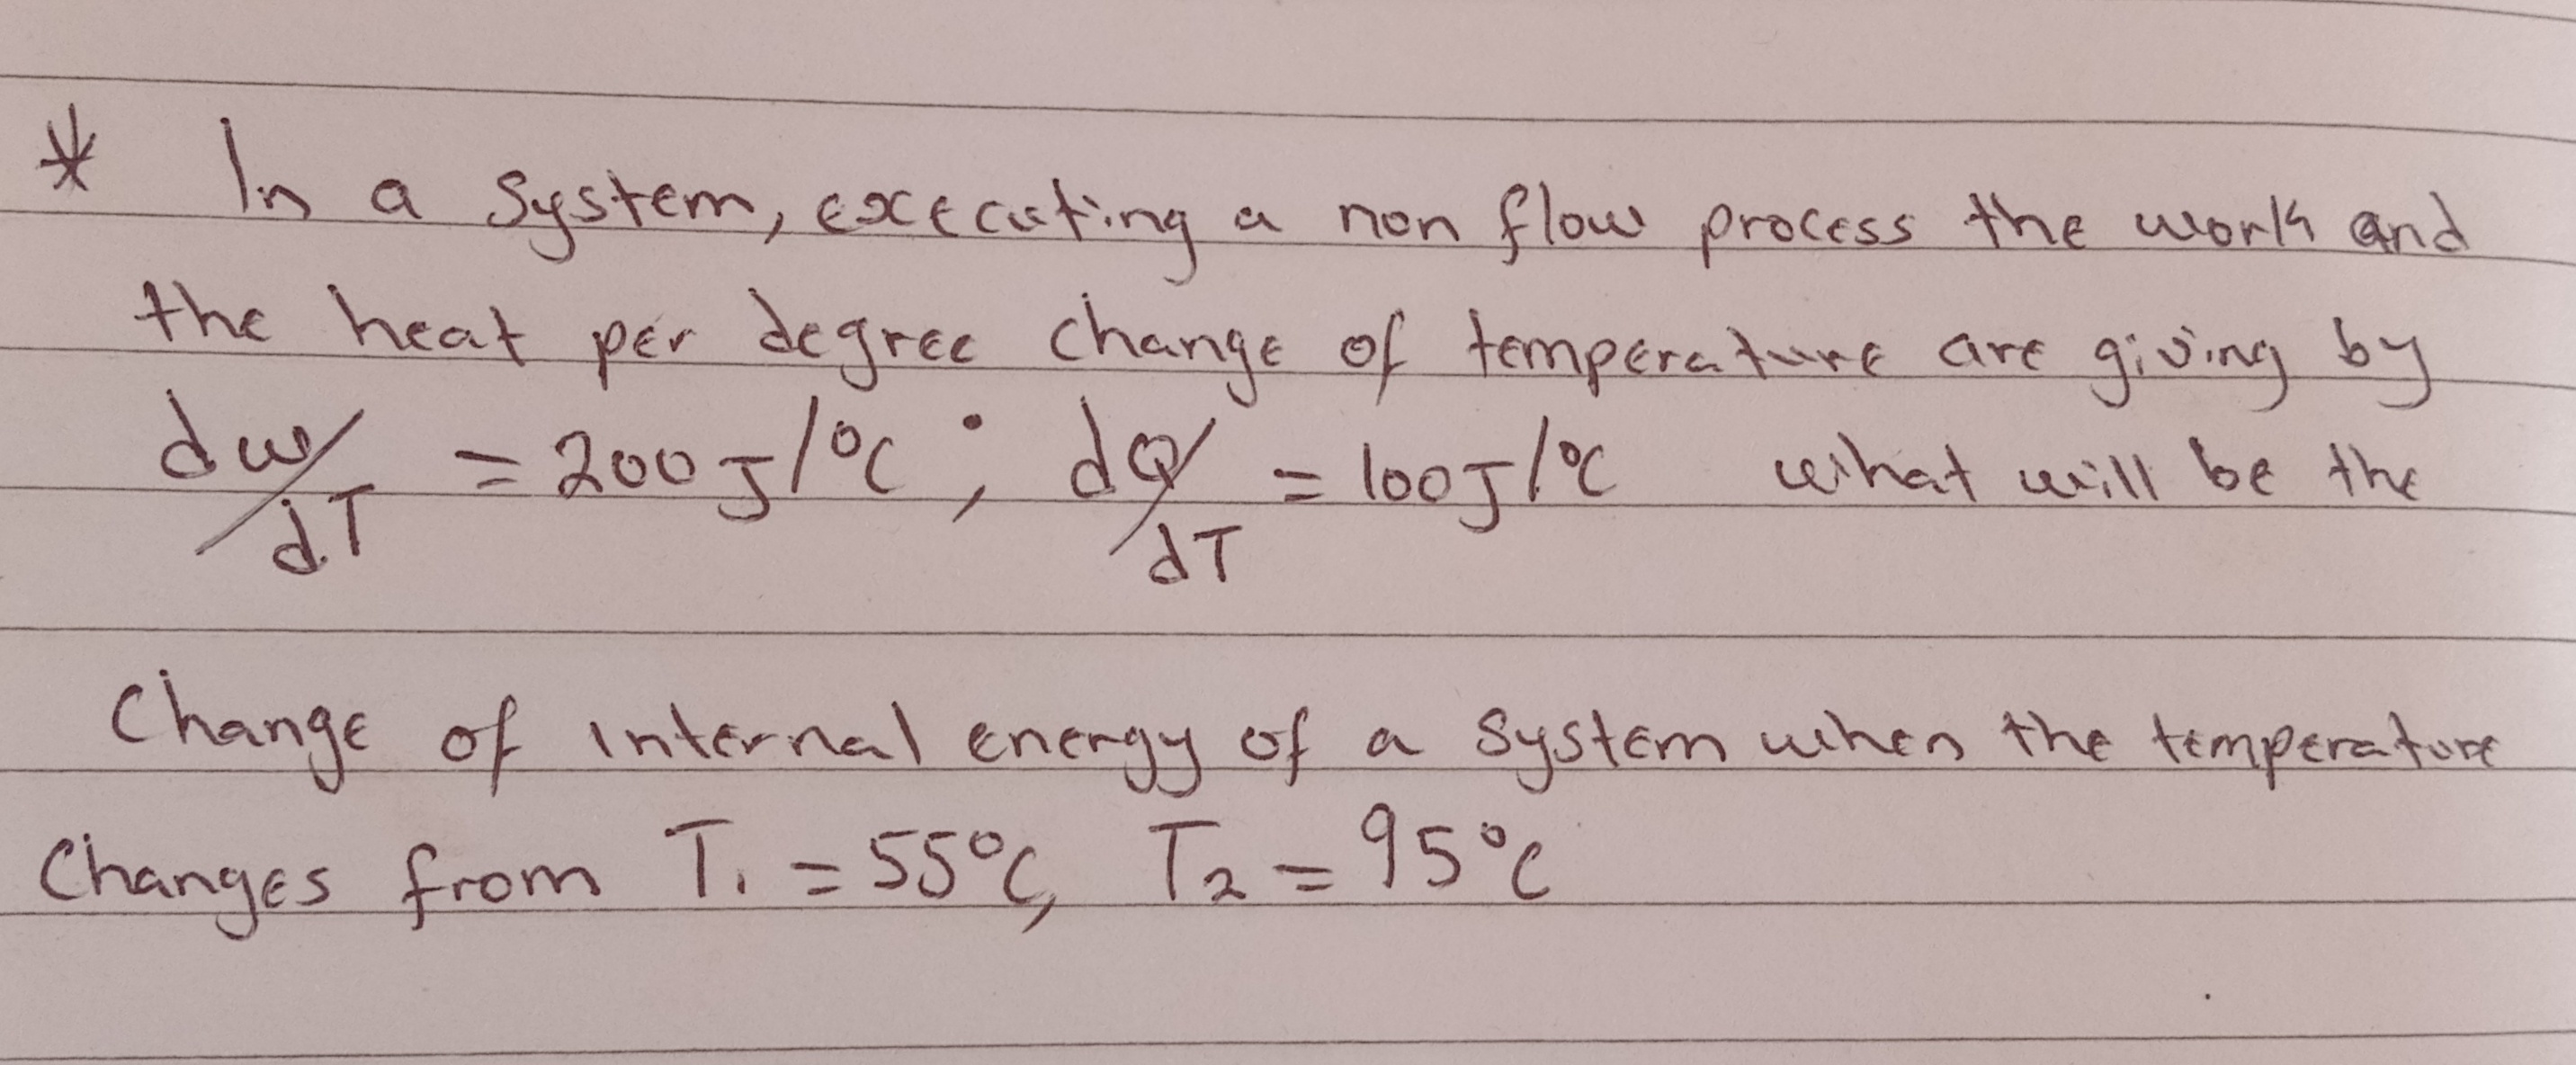 * In a system, executing a non flow process the work and
the heat per degree change of temperature are giving by
dw/dT = 200 J/°C ; dQ/dT = 100 J/°C what will be the
Change of internal energy of a system when the temperature
Changes from T₁ = 55°C, T₂ = 95°C